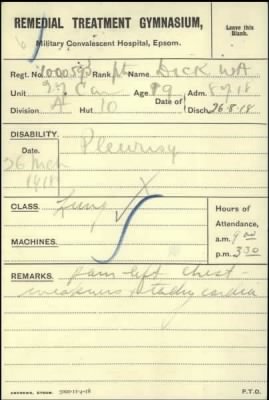 REMEDIAL TREATMENT GYMNASIUM,
Military Convalescent Hospital, Epsom.
Leave this Blank.
Regt. No. 1000593 Rank Pt Name DICK WA
Unit 27 Can Age 89 Adm. 8/7/18
Division A Hut 10 Date of Disch. 26-8-18
DISABILITY. Pleurisy
Date.
26 Mch
1918
CLASS. Lung X
MACHINES.
Hours of
Attendance,
a.m. 9 00
p.m. 3 30
REMARKS. Pain left chest -
weakness + tachycardia
ANDREWS, EPSOM. 5000-11-4-18 P.T.O.